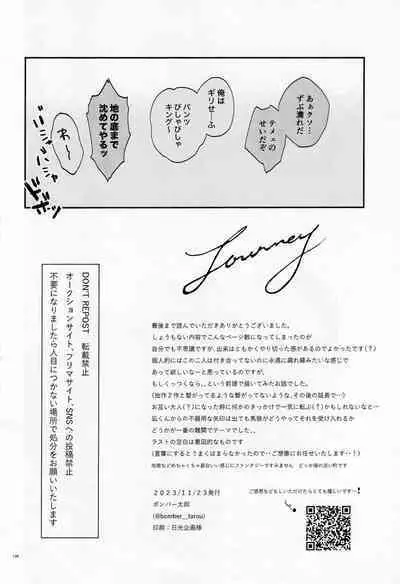 あぁクソ…
ずぶ濡れだ
テメェの
せいだぞ
俺は
ギリせーふ
パンツ
びしゃびしゃ
キング〜
地の底まで
沈めてやるッ
わ〜
Journey
最後まで読んでいただきありがとうございました。
しょうもない内容でこんなページ数になってしまったのが
自分でも不思議ですが、出来はともかくやり切った感があるのでよかったです（？）
個人的にはこの二人は付き合ってないのに永遠に腐れ縁みたいな感じで
あって欲しいな〜と思っているのですが、
もしくっつくなら、、という前提で描いてみたお話でした。
(拙作２作と繋がってるような繋がってないような、、その後の延長…)
お互い大人(？)になった時に何かのきっかけで一気に転ぶ(？)かもしれないなと…
広くんからの不器用な矢印は出ても男娘がどうやってそれを受け入れるか
どうかが一番の難関でテーマでした、、
ラストの空白は意図的なものです
(言葉にするとうまくはまらなかったので…ご想像にお任せいたします…！)
2023/11/23発行
ボンバー太郎
(@bomber__tarou)
印刷：日光企画様
ご感想などもしいただけたらとっても嬉しいです…！
DON'T REPOST 転載禁止
オークションサイト、フリマサイト、SNSへの投稿禁止
不要になりましたら人目につかない場所で処分をお願いいたします